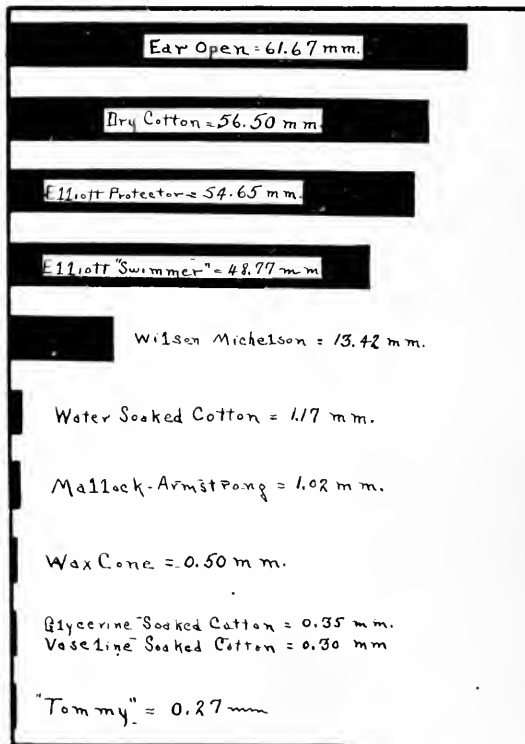 Ear Open = 61.67 mm.
Dry Cotton = 56.50 mm.
Elliott Protector = 54.65 mm.
Elliott "Swimmer" = 48.77 mm
Wilson Michelson = 13.42 mm.
Water Soaked Cotton = 1.17 mm.
Mallock-Armstrong = 1.02 mm.
Wax Cone = 0.50 mm.
Glycerine Soaked Cotton = 0.35 mm.
Vaseline Soaked Cotton = 0.30 mm
"Tommy" = 0.27 mm